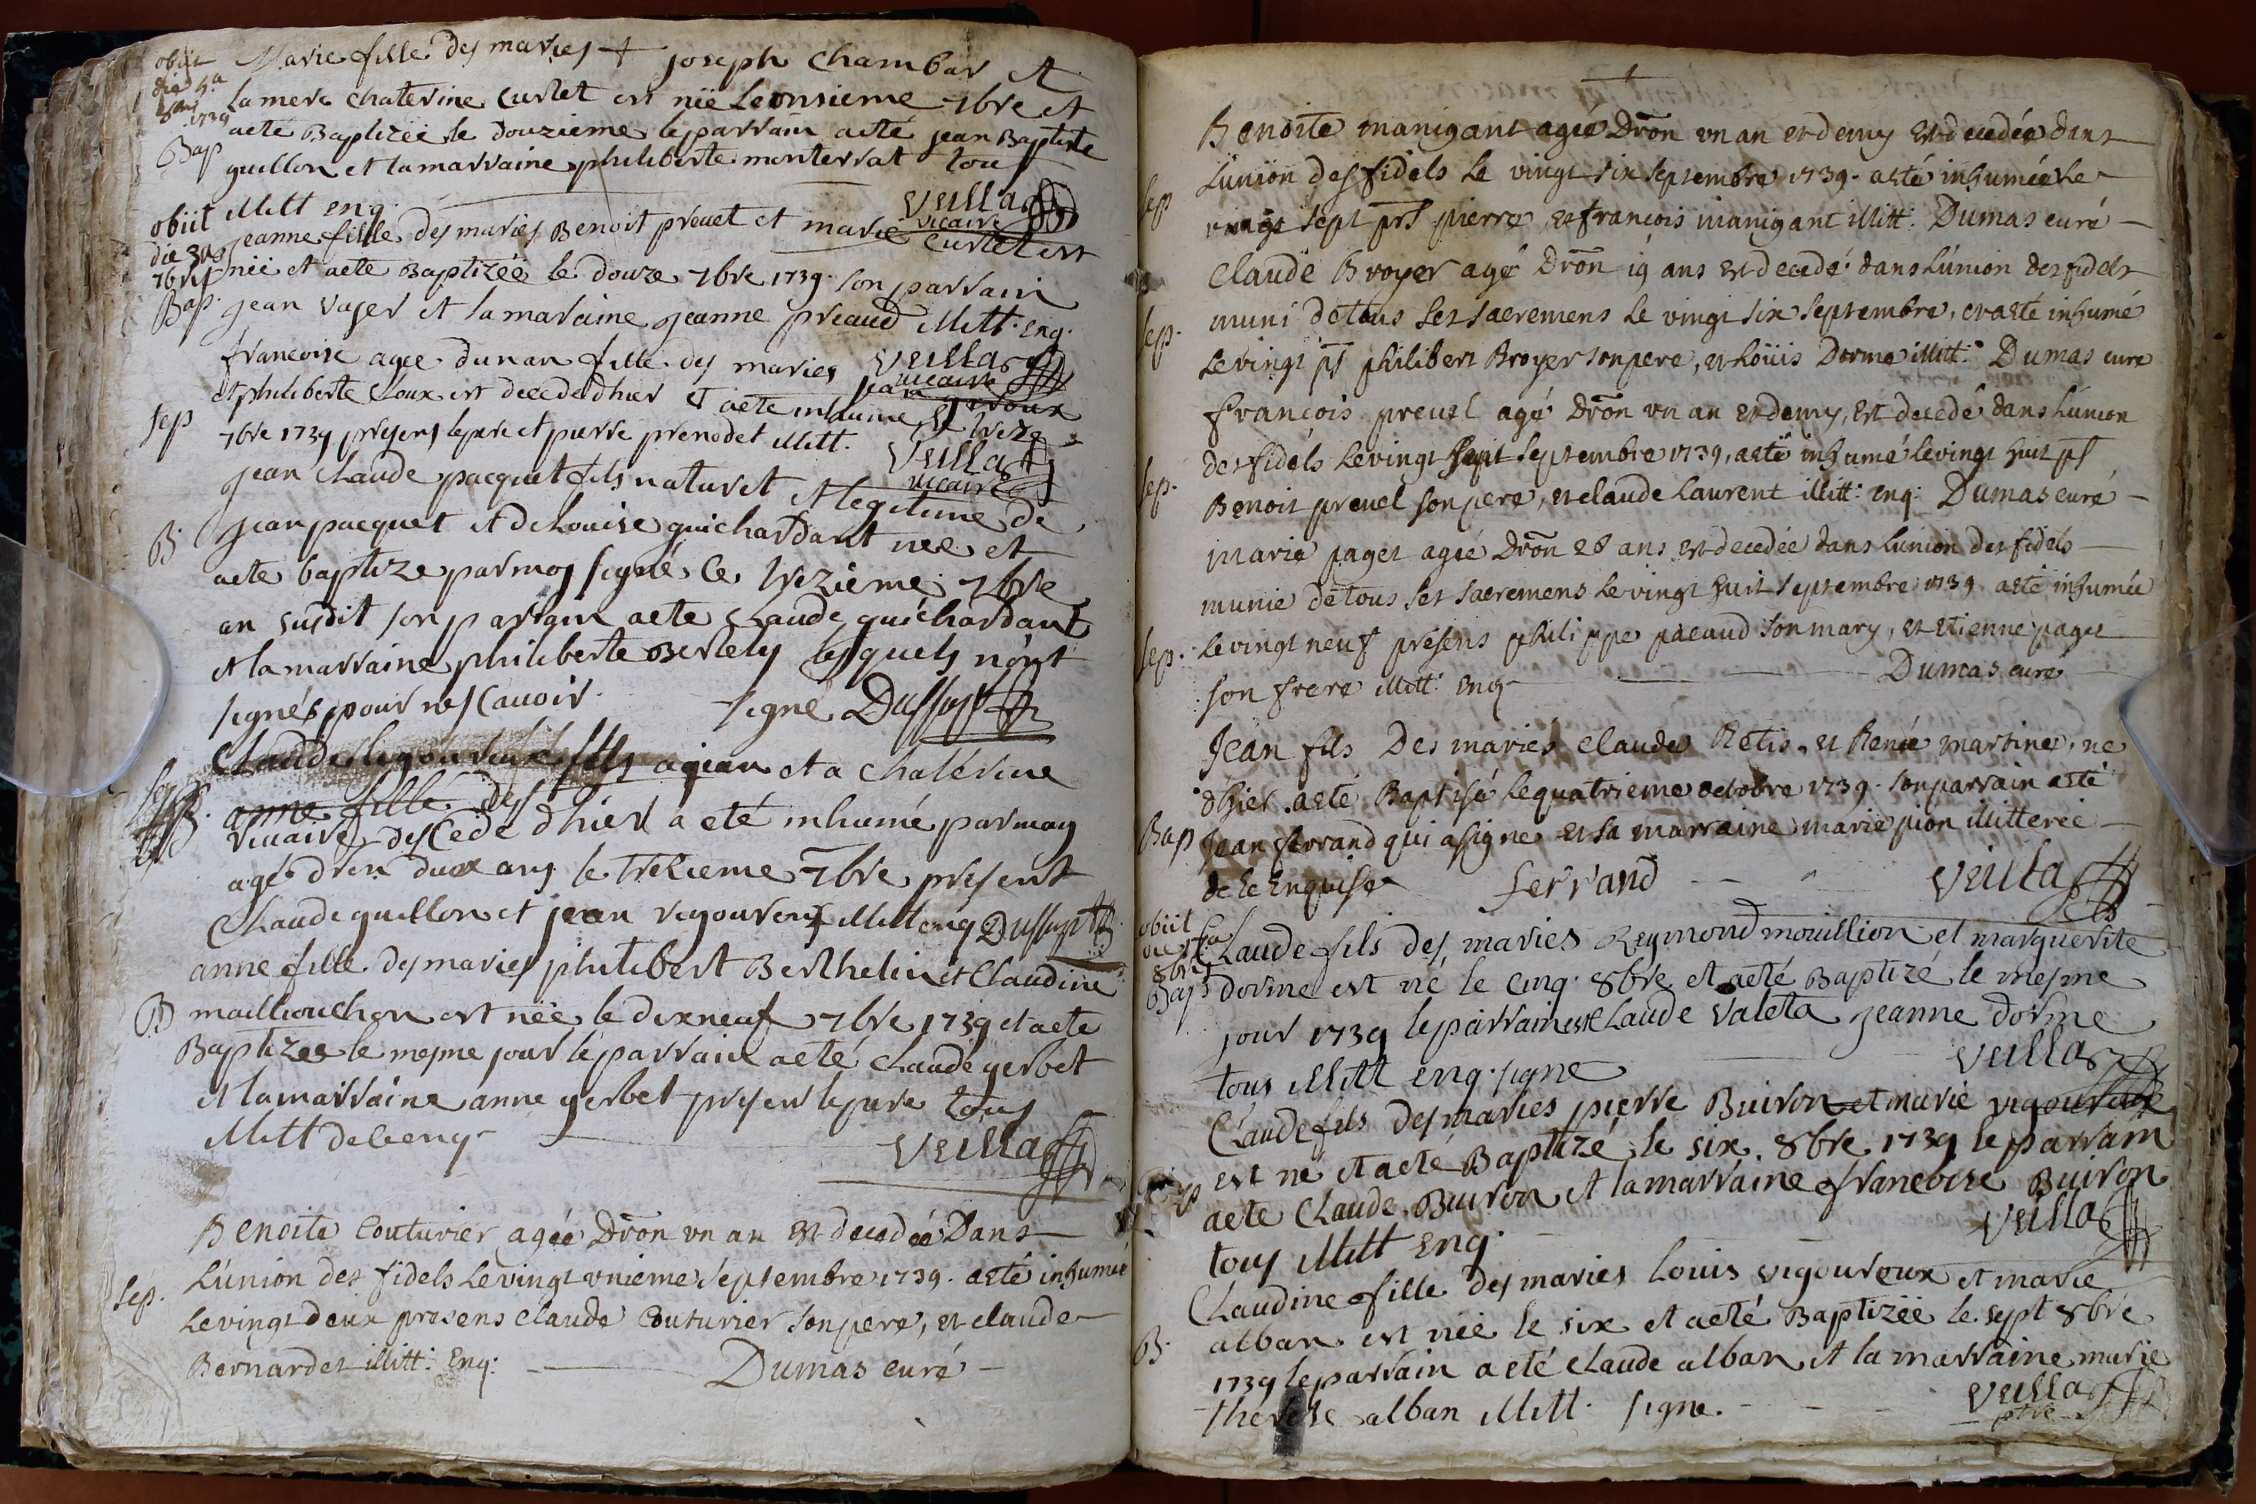 obiit
die 5a
8bris
1739
Marie fille des maries + joseph Chambar et
la mere Chaterine Curtet est née Le onsieme 7bre et
Bap
aeté Baptizeé le douzieme le parrain aeté jean Baptiste
guillon et la marraine philiberte monterrat tous
illitt enq.
Veilla
vicaire
obiit
die 30a
7bris
Bap.
jeanne fille des maries Benoit preuet et marie Curtet est
neé et aeté Baptizeé le douze 7bre 1739 son parrain
jean vayer et la maraine jeanne preaud illitt. enq.
Veilla
vicaire
francoise agee dun an fille des maries
et philiberte Cloux est decede dhier et aeté inhumé le treze
sep
7bre 1739 presens le pere et pierre prenodet illitt.
Veilla
vicaire
jean Claude pacquet fils naturel et legitime de
B.
jean pacquet et de Louise guichardant neé et
aeté baptize par moy signé ce trezieme 7bre
an susdit son parrain aeté Claude guichardant
et la marraine philiberte Berlely lesquels n'ont
signés pour ne scavoir. signé Dussust
Claude vigoureux fils a jean et a chatérine
sep.
anne fille des
Vicaire descede dhier a eté inhumé par moy
agé dron deux ans le trezieme 7bre present
Claude guillon et jean vigoureux illitt enq Dussust
anne fille des maries philibert Berthelin et Claudine
B
maillouchon est neé le dixneuf 7bre 1739 et aeté
Baptizeé le mesme jour le parrain aeté Claude gerbet
et la marraine anne gerbet present le pere tous
illitt de ce enq.
Veilla
Benoite Couturier agée Dron un an est decedée Dans
sep.
L'union des fidels le vingt unieme Septembre 1739. aesté inhumée
le vingt deux presens claude Couturier son pere, et claude
Bernardet illitt: Enq: Dumas curé
Benoite manigant agée Dron un an et demy est decedée dans
sep
L'union des fidels le vingt six septembre 1739. aesté inhumée le
vingt sept pns pierre, et françois manigant illitt: Dumas curé
Claude Broyer agé Dron 19 ans est decedé dans l'union des fidels
sep.
muni de tous ses sacremens le vingt six septembre, et aesté inhumé
le vingt pns philibert Broyer son pere, et Loüis Dorme illitt: Dumas curé
françois prevel agé Dron un an et demy, est decedé dans l'union
sep.
des fidels le vingt sept septembre 1739, aesté inhumé le vingt huit pns
Benoit prevel son pere, et claude Laurent illitt: enq: Dumas curé
marie paget agée Dron 28 ans est decedée dans l'union des fidels
munie de tous ses sacremens le vingt huit septembre 1739 aesté inhumée
sep.
le vingt neuf présens philippe pacaud son mary, et Etienne paget
son frere illitt: enq. Dumas curé
Jean fils Des maries claude Retis, et Renée martiner, né
d'hier aesté Baptisé le quatrieme octobre 1739. son parrain aesté
Bap
Jean ferrand qui a signé et sa marraine marie pion illitterée
de ce Enquise ferrand Veilla
obiit
die 7a
8bris
Bap
Claude fils des maries Reymond mouillion et marguerite
dorme est né le cinq 8bre et aeté Baptizé le mesme
jour 1739 le parrain est Claude Valeta jeanne dorme
tous illitt enq. signe Veilla
Claude fils des maries pierre Buiron et marie vigoureux
est né et aeté Baptizé le six 8bre 1739 le parrain
aeté Claude Buiron et la marraine francoise Buiron
tous illitt enq. Veilla
Claudine fille des maries Louis vigouroux et marie
B.
alban est neé le six et aeté Baptizeé le sept 8bre
1739 le parrain a eté claude alban et la marraine marie
therese alban illitt. signe. Veilla
ptre